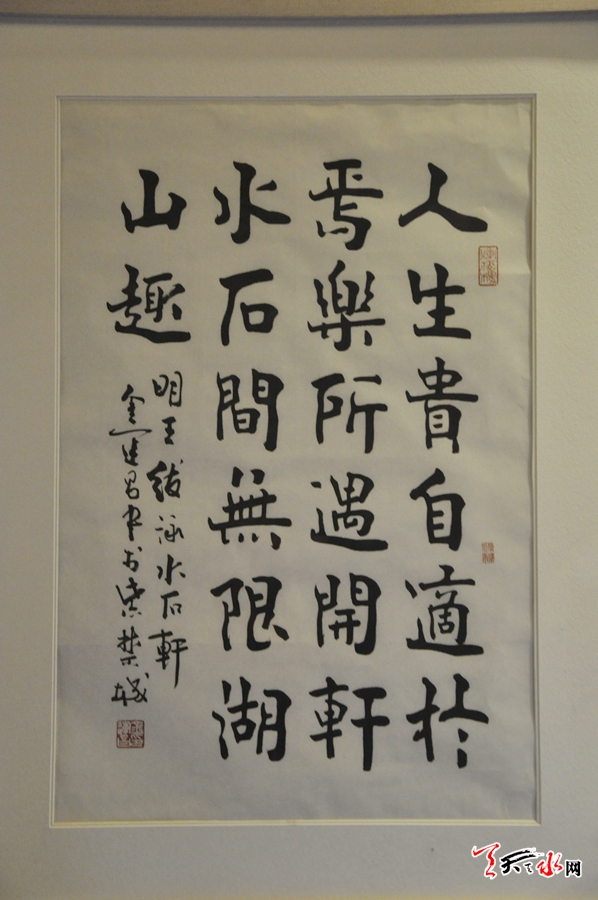 人生貴自適於
焉樂所遇開軒
水石間無限湖
山趣
明王紱詠水石軒
金運昌書於紫禁城
天水网